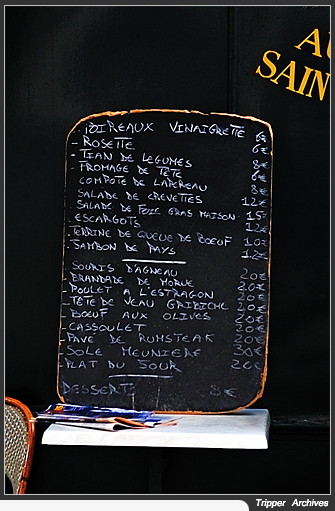 AU
SAIN
- POIREAUX VINAIGRETTE 6€
- ROSETTE 6€
- TIAN DE LEGUMES 8€
- FROMAGE DE TÊTE 6€
- COMPOTE DE LAPEREAU 8€
- SALADE DE CREVETTES 12€
- SALADE DE FOIE GRAS MAISON 15€
- ESCARGOTS 12€
- TERRINE DE QUEUE DE BOEUF 10€
- JAMBON DE PAYS 12€
- SOURIS D'AGNEAU 20€
- BRANDADE DE MORUE 20€
- POULET A L'ESTRAGON 20€
- TÊTE DE VEAU GRIBICHE 20€
- BOEUF AUX OLIVES 20€
- CASSOULET 20€
- PAVE DE RUMSTEAK 20€
- SOLE MEUNIERE 30€
- PLAT DU JOUR 20€
DESSERT 8€
Tripper Archives